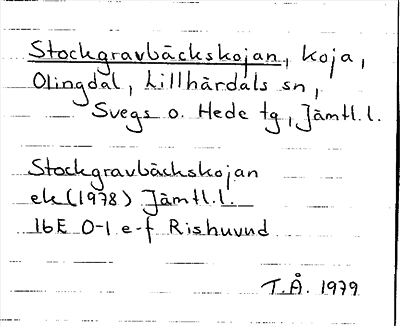 Stockgravbäckskojan, koja,
Olingdal, Lillhärdals sn,
Svegs o. Hede tg, Jämtl.l.
Stockgravbäckskojan
ek (1978) Jämtl.l.
16E 0-1 e-f Rishuvud
T.Å. 1979